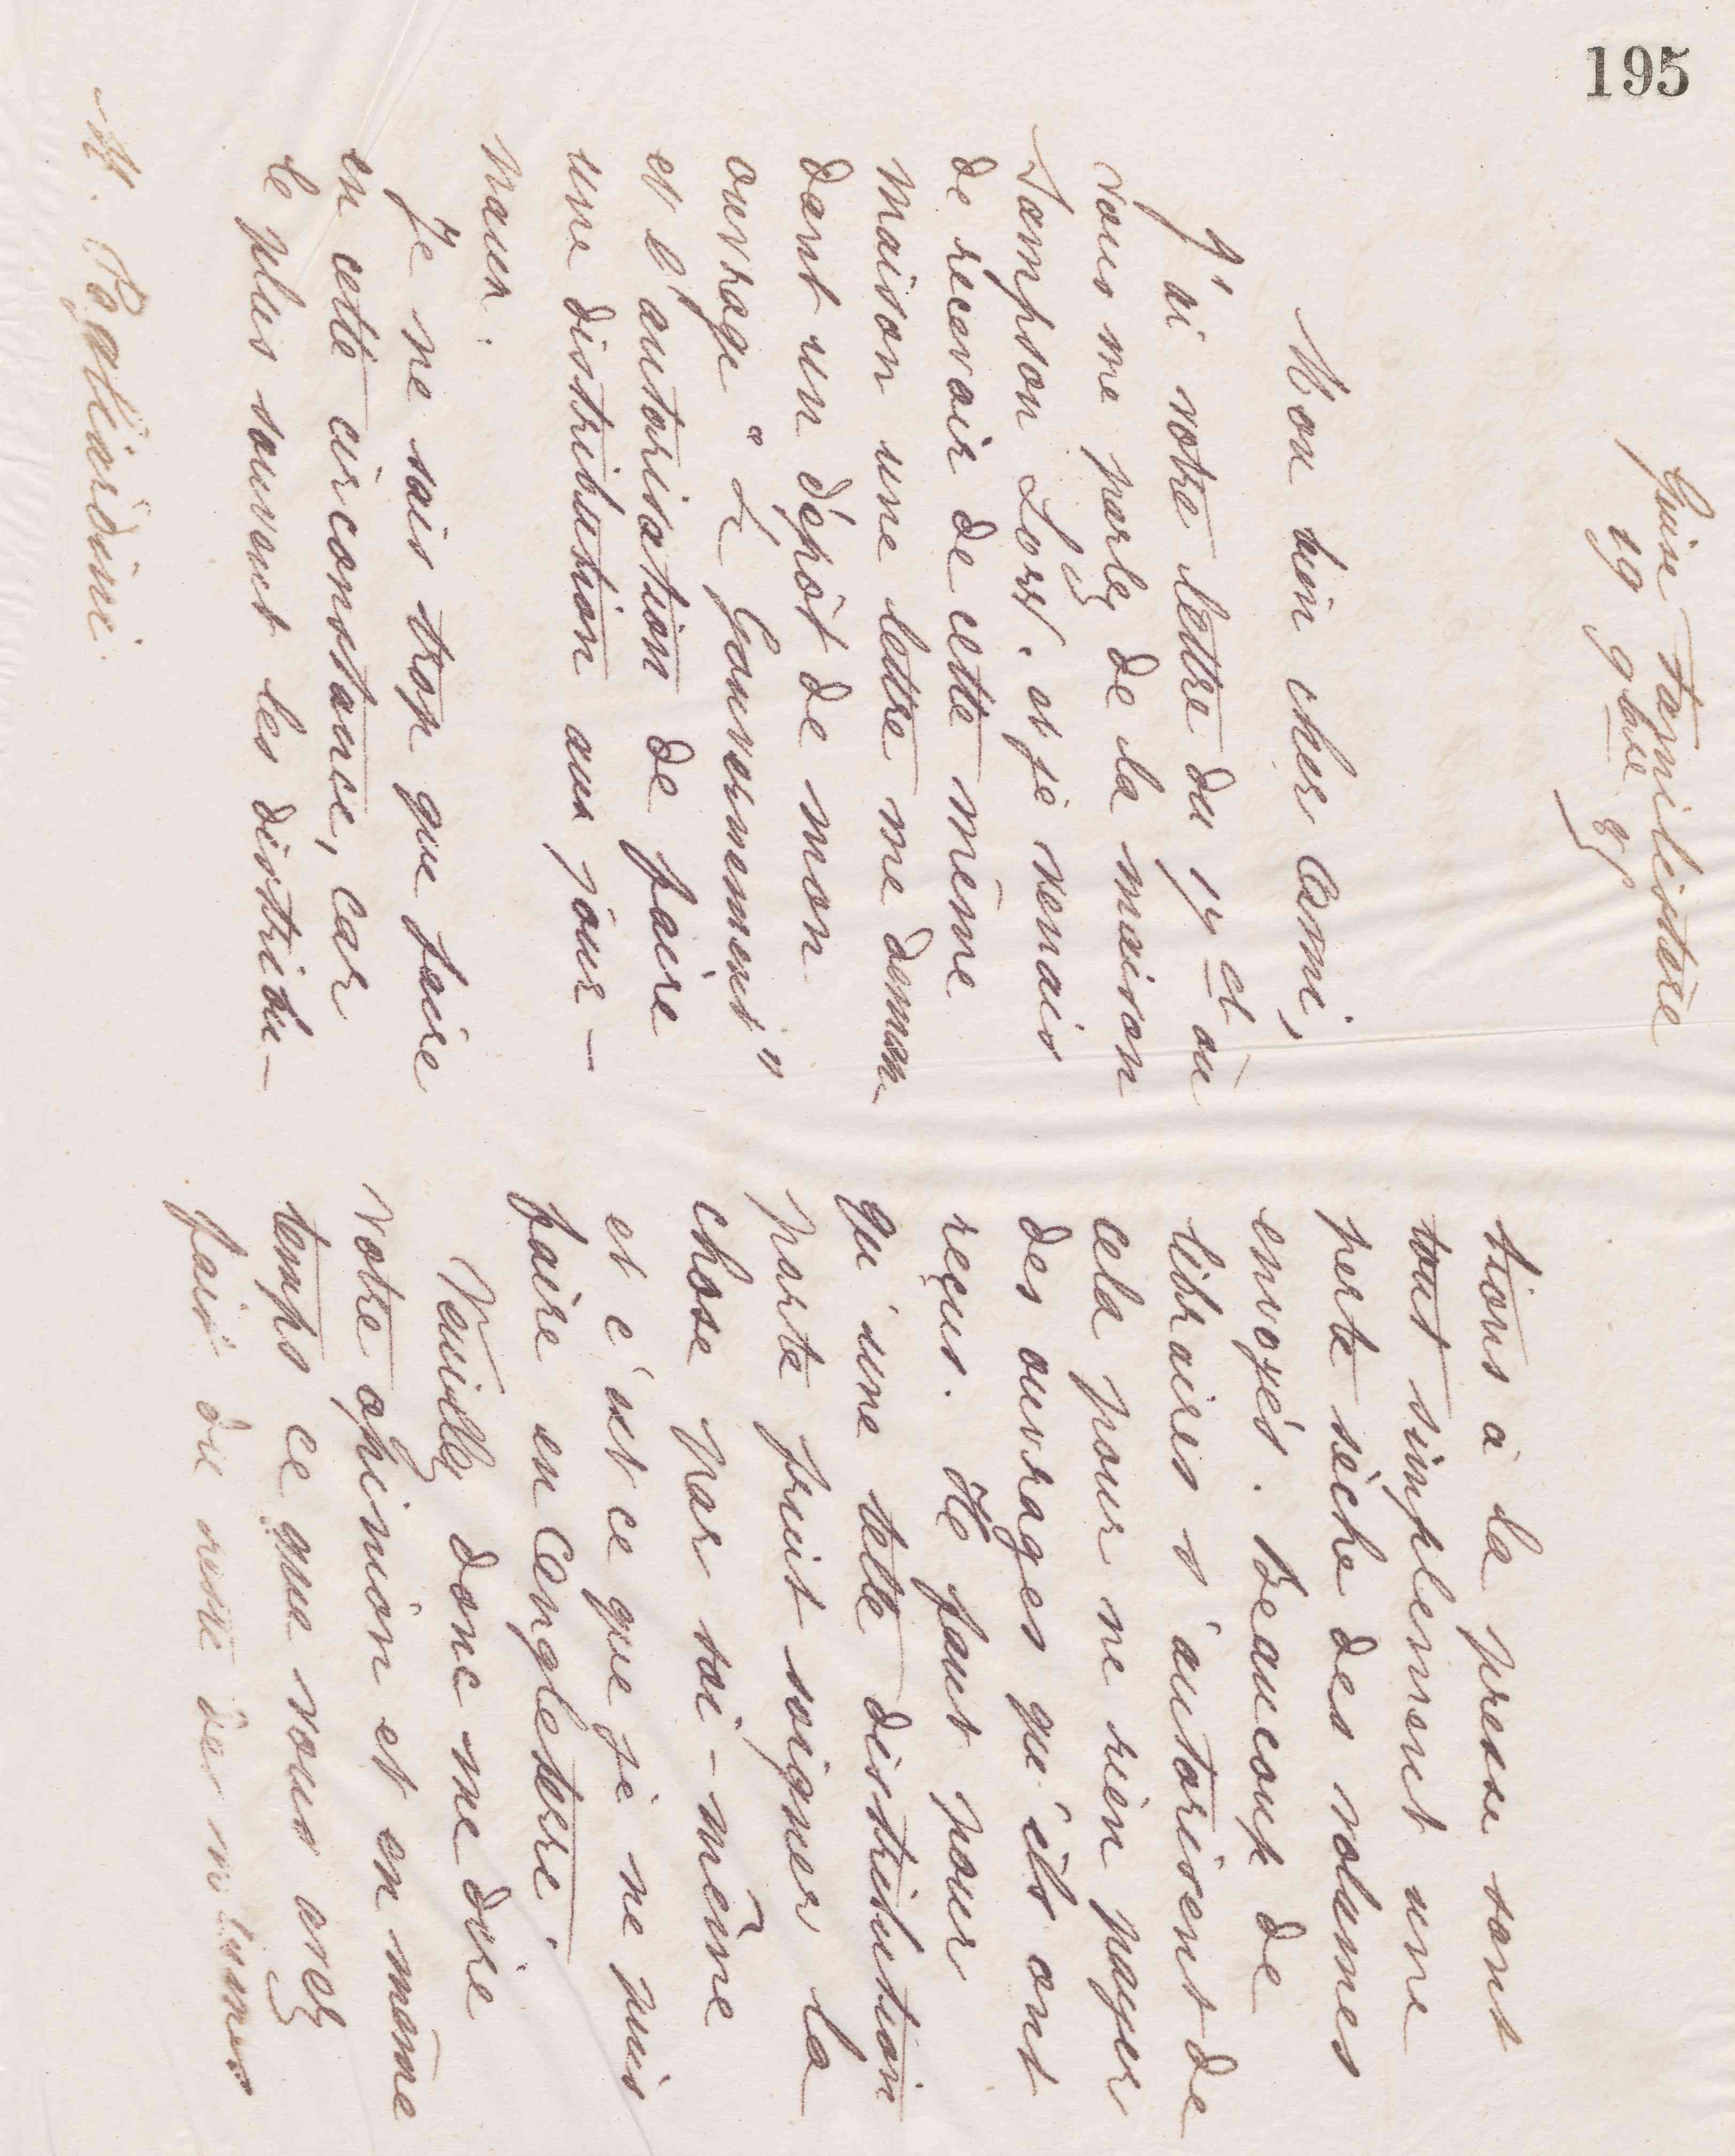 195
Guise Familistère
19 9bre 83
Mon bien cher ami,
J'ai votre lettre du 17 ct où
vous me parlez de la maison
Sampson Low. et je venais
de recevoir de cette même
maison une lettre me deman
dant un dépôt de mon
ouvrage "Le Gouvernement"
et l'autorisation de faire
une distribution aux jour-
naux.
Je ne sais trop que faire
en cette circonstance, car
le plus souvent les distribu-
M. Pagliardini.
tions à la presse sont
tout simplement une
perte sèche des volumes
envoyés. Beaucoup de
libraires s'autorisent de
cela pour ne rien payer
des ouvrages qu'ils ont
reçus. Il faut pour
qu'une telle distribution
porte fruit soigner la
chose par soi-même
et c'est ce que je ne puis
faire en Angleterre.
Veuillez donc me dire
votre opinion et en même
temps ce que vous avez
fait du reste des volumes